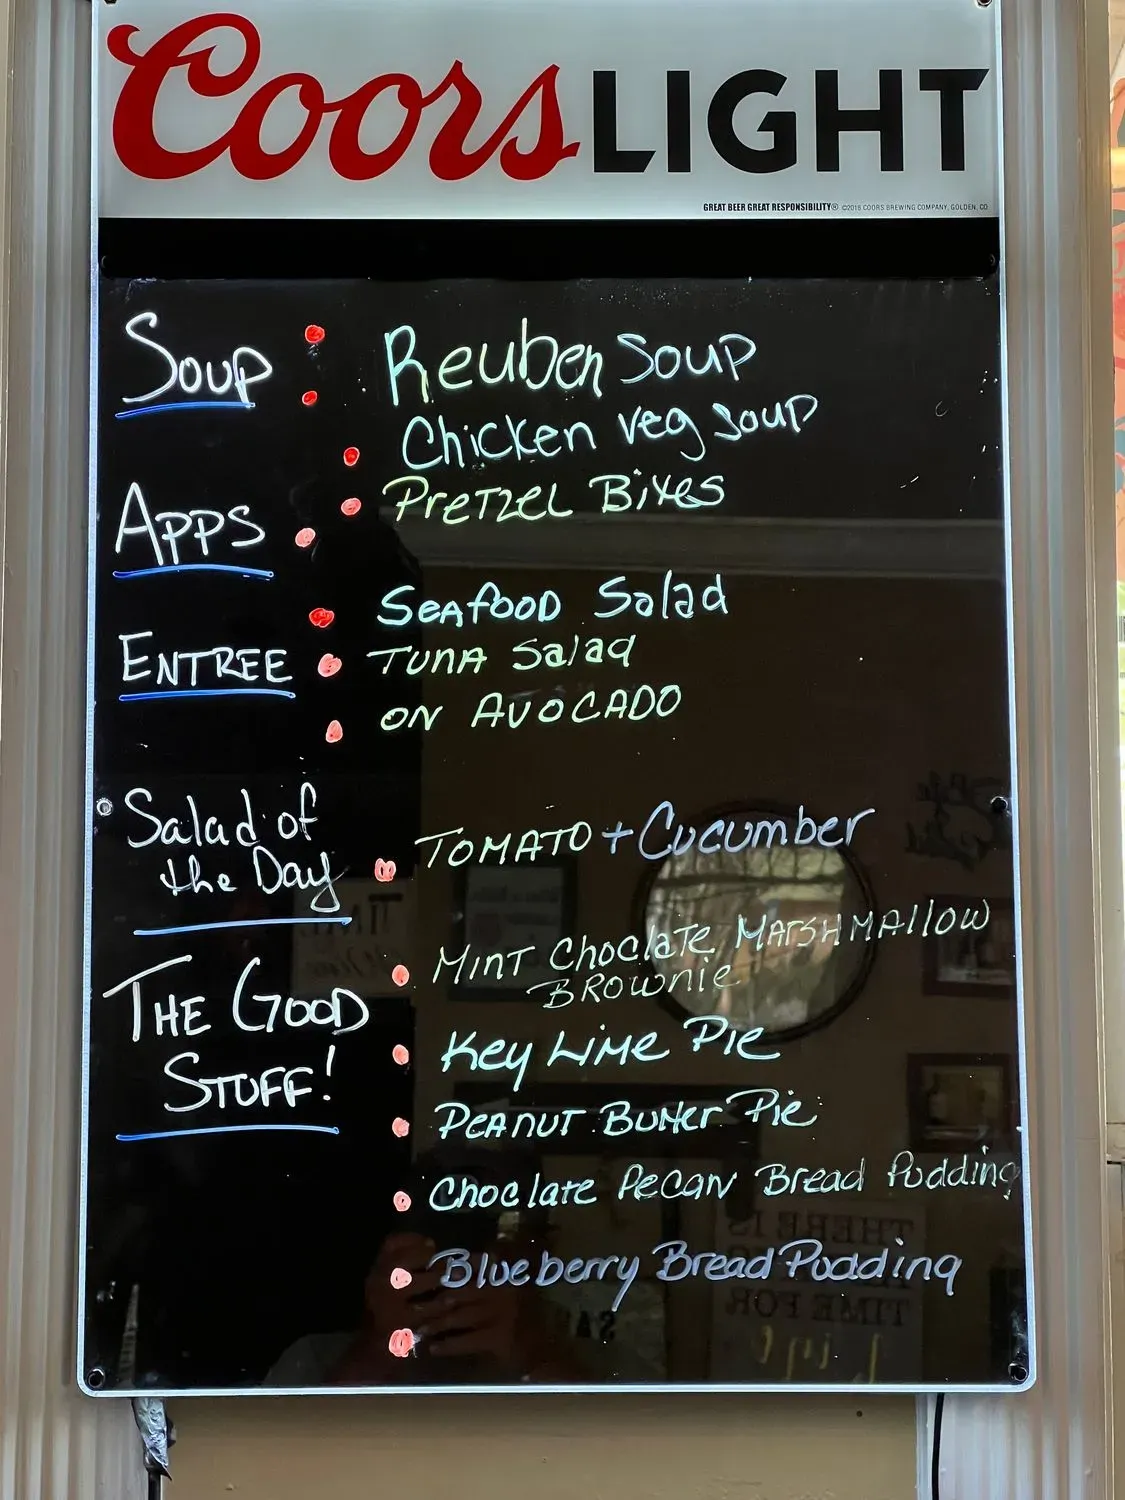 Coors LIGHT
GREAT BEER GREAT RESPONSIBILITY® ©2016 COORS BREWING COMPANY, GOLDEN, CO
Soup
Reuben Soup
Chicken Veg Soup
APPS
PRETZEL BITES
ENTREE
SEAFOOD Salad
TUNA Salad
ON AVOCADO
Salad of
the Day
TOMATO + Cucumber
THE GOOD
STUFF!
MINT Choclate MARSHMAllOW
BROWNIE
Key LIME PIE
PEANUT BUTTER PIE
Choclate PECAN Bread Pudding
Blueberry Bread Pudding